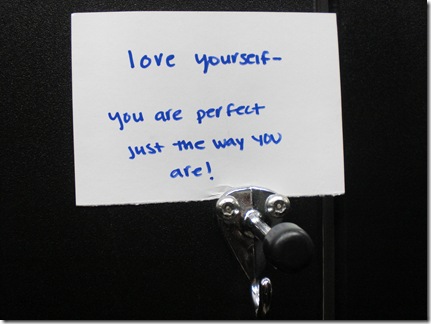 love yourself-
you are perfect
just the way you
are!